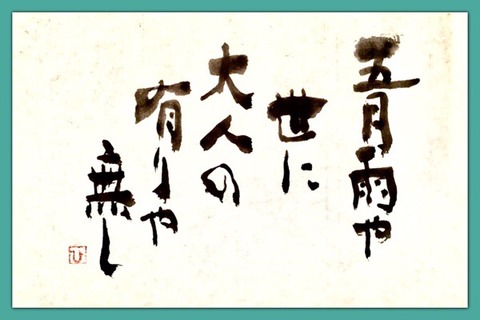 五月雨や
世に
大人の
有りや
無し
ひ